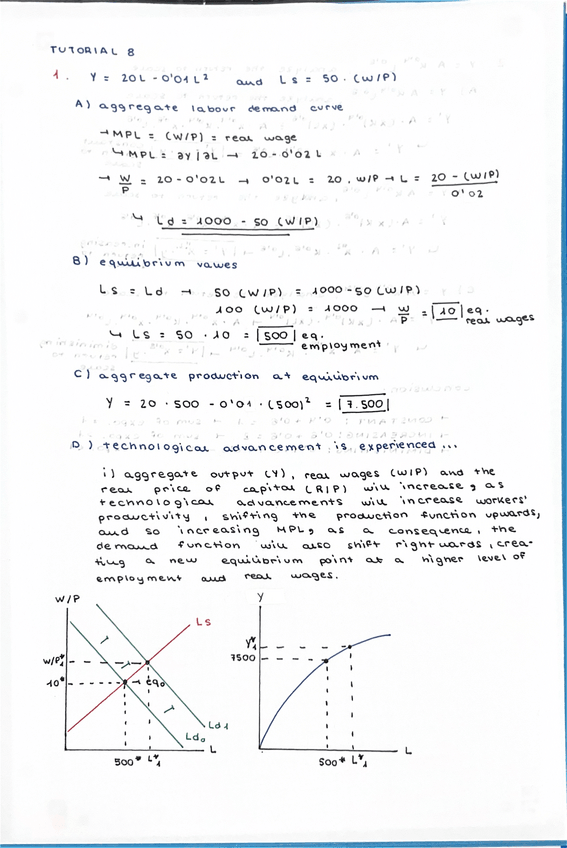 TUTORIAL 8
1. Y = 20L - 0'01L² and Ls = 50 · (W/P)
A) aggregate labour demand curve
→ MPL = (W/P) = real wage
↳ MPL = ∂Y/∂L → 20 - 0'02L
→ W/P = 20 - 0'02L → 0'02L = 20 . W/P → L = 20 - (W/P) / 0'02
↳ Ld = 1000 - 50 (W/P)
B) equilibrium values
Ls = Ld → 50 (W/P) = 1000 - 50 (W/P)
100 (W/P) = 1000 → W/P = 10 eq. real wages
↳ Ls = 50 · 10 = 500 eq. employment
C) aggregate production at equilibrium
Y = 20 · 500 - 0'01 · (500)² = 7.500
D) technological advancement is experienced ...
i) aggregate output (Y), real wages (W/P) and the
real price of capital (R/P) will increase, as
technological advancements will increase workers'
productivity, shifting the production function upwards,
and so increasing MPL, as a consequence, the
demand function will also shift rightwards, crea-
ting a new equilibrium point at a higher level of
employment and real wages.
W/P
Ls
W/P*1
10*
eq0
Ld1
Ld0
L
500* L*1
Y
Y*1
7500
L
500* L*1